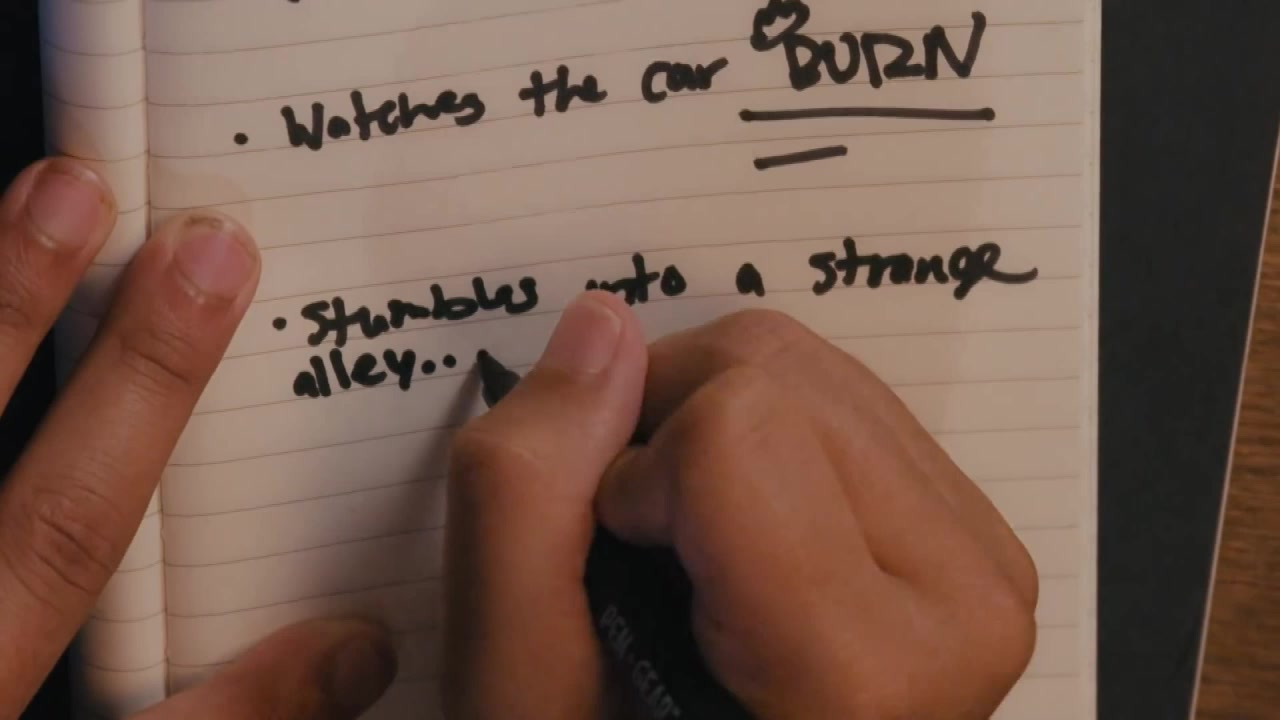 • Watches the car BURN
• Stumbles into a strange
alley..
PEN+GEAR